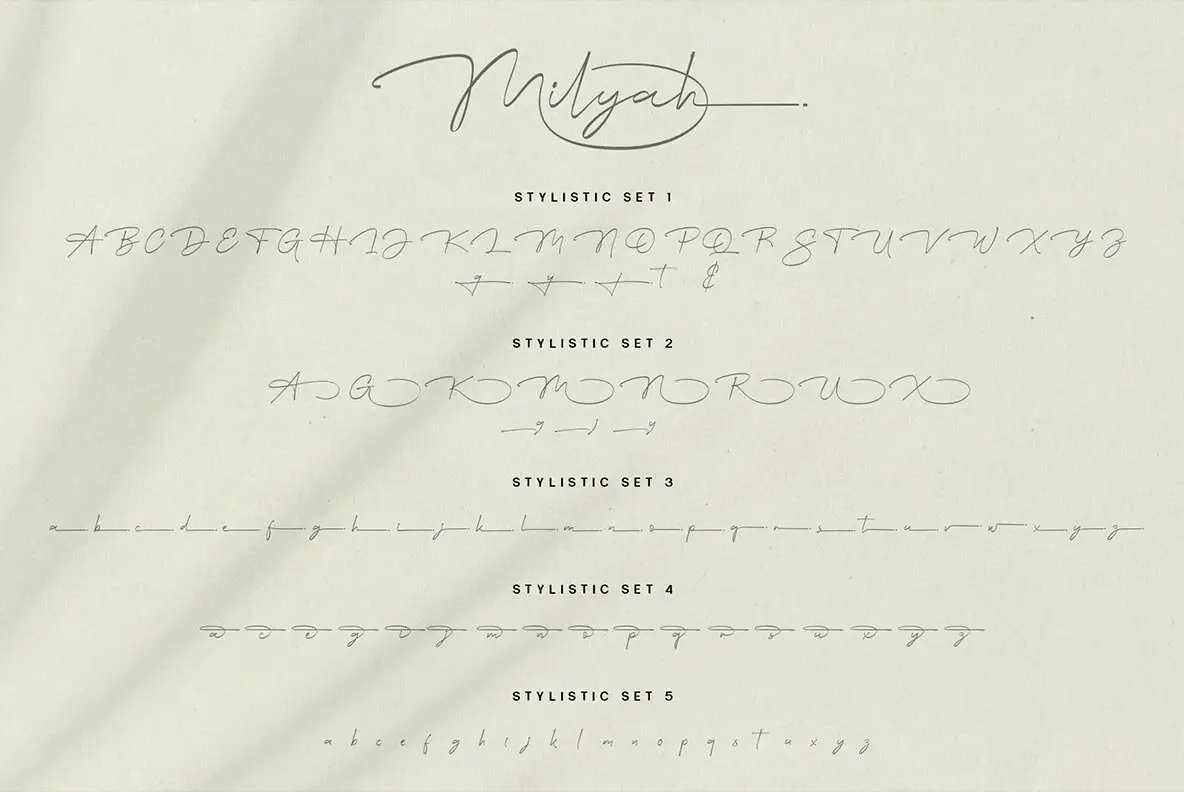 Milyah
STYLISTIC SET 1
A B C D E F G H I J K L M N O P Q R S T U V W X Y Z
g y t T &
STYLISTIC SET 2
A G K M N R U X
g j y
STYLISTIC SET 3
a b c d e f g h i j k l m n o p q r s t u v w x y z
STYLISTIC SET 4
a c e g i j m n o p q r s u x y z
STYLISTIC SET 5
a b c e f g h i j k l m n o p q s t u x y z